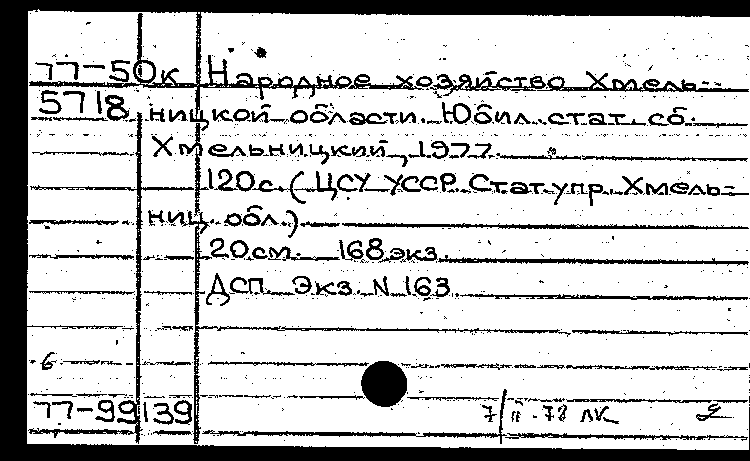 77-50к Народное хозяйство Хмель-
5718 ницкой области. Юбил. стат. сб.
Хмельницкий, 1977.
120с. (ЦСУ УССР. Стат. упр. Хмель-
ниц. обл.)
20см. 168 экз.
ДСП. Экз. N 163.
6
77-99139 7/II-78 ЛК 2